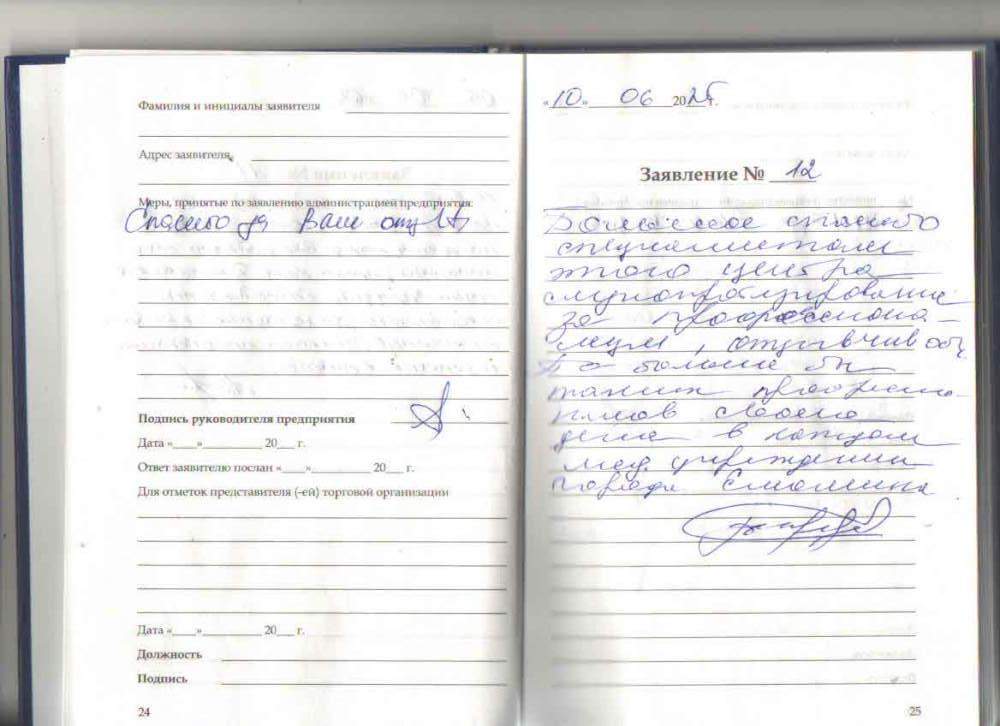 Фамилия и инициалы заявителя
Адрес заявителя
Меры, принятые по заявлению администрацией предприятия:
Спасибо за Ваш отзыв
Подпись руководителя предприятия
Дата «___»__________ 20___ г.
Ответ заявителю послан «___»__________ 20___ г.
Для отметок представителя (-ей) торговой организации
Дата «___»__________ 20___ г.
Должность
Подпись
24
«10» 06 2025 г.
Заявление № 12
Большое спасибо
специалистам
этого центра
слухопротезирования
за профессиона-
лизм, отзывчивость
больше бы
таких професси-
оналов своего
дела в каждом
мед. учреждении
города
25